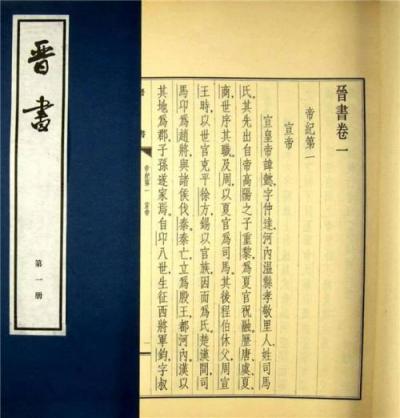 晉書
第一册
晉書卷一
帝紀第一
宣帝
宣皇帝諱懿,字仲達,河內溫縣孝敬里人,姓司馬
氏。其先出自帝高陽之子重黎,爲夏官祝融,歷唐、虞、夏、
商,世序其職。及周,以夏官爲司馬。其後程伯休父,周宣
王時,以世官克平徐方,錫以官族,因而爲氏。楚漢間,司
馬卬爲趙將,與諸侯伐秦。秦亡,立爲殷王,都河內。漢以
其地爲郡,子孫遂家焉。自卬八世,生征西將軍鈞,字叔
書
帝紀第一 宣帝